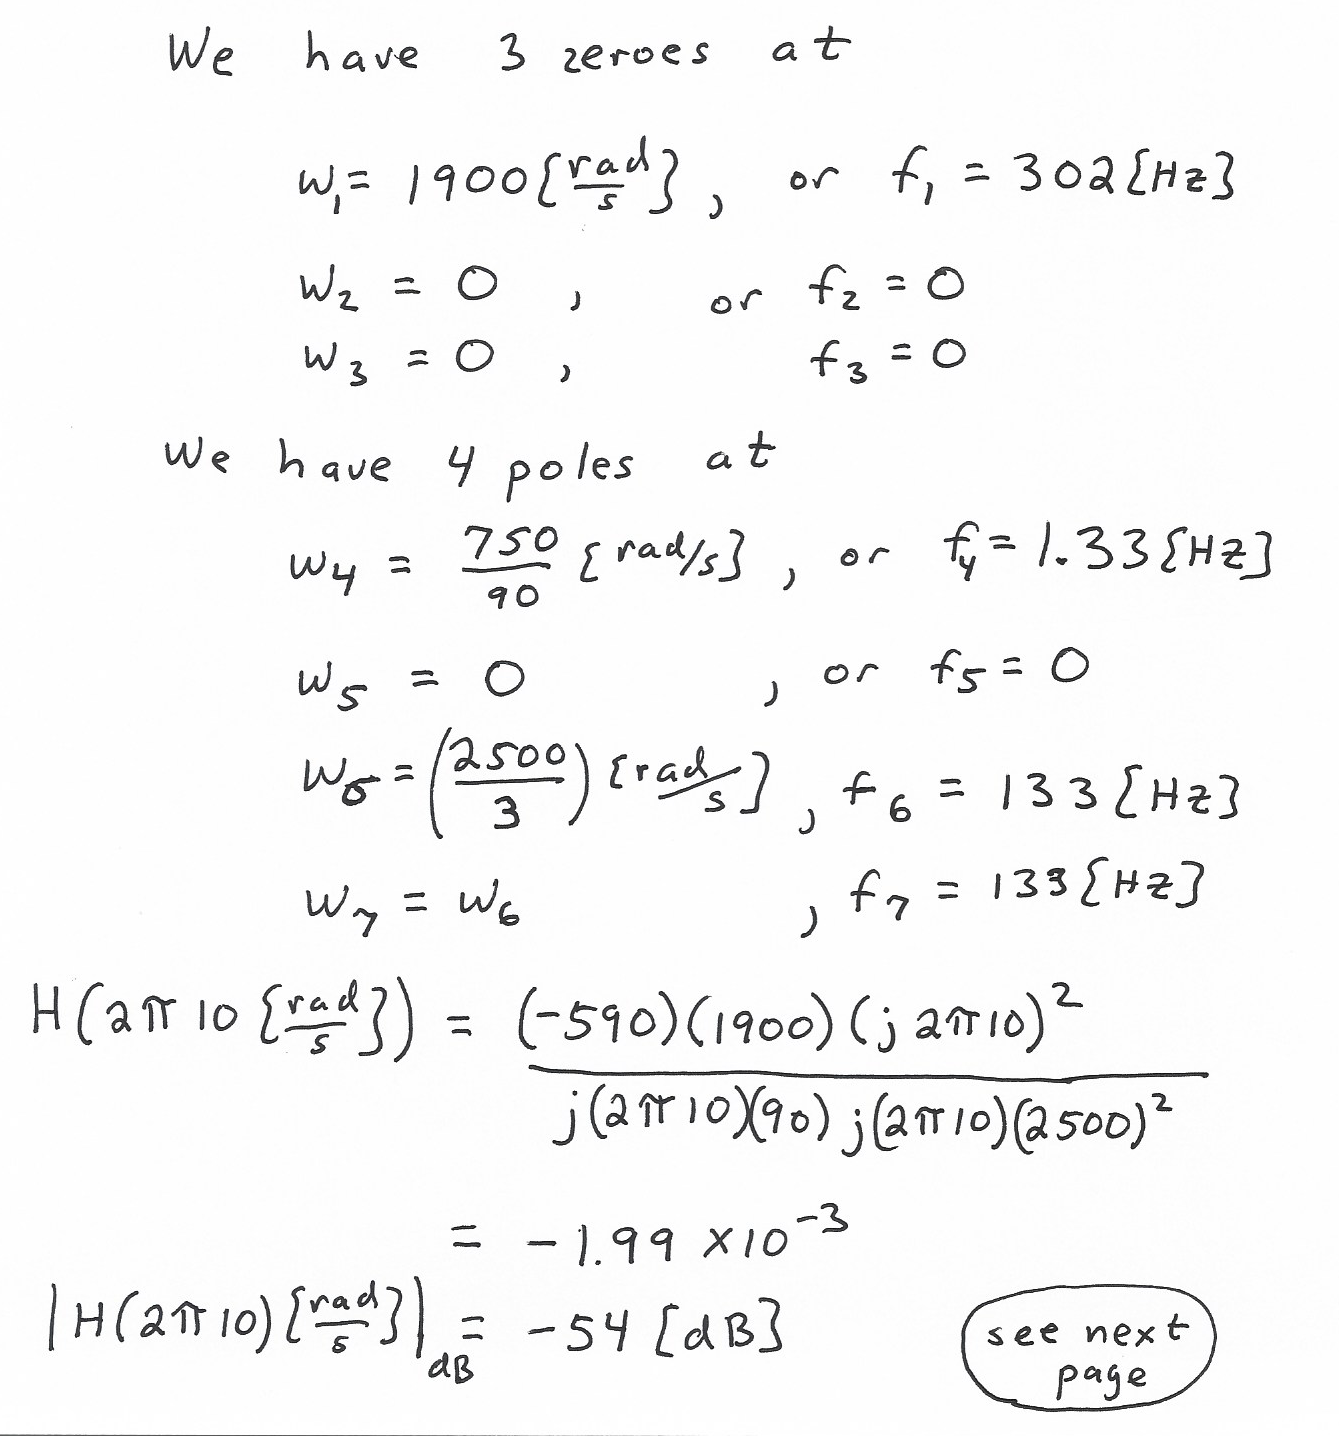 We have 3 zeroes at
ω₁ = 1900 [rad/s], or f₁ = 302 [Hz]
ω₂ = 0, or f₂ = 0
ω₃ = 0, f₃ = 0
We have 4 poles at
ω₄ = 750/90 [rad/s], or f₄ = 1.33 [Hz]
ω₅ = 0, or f₅ = 0
ω₆ = (2500/3) [rad/s], f₆ = 133 [Hz]
ω₇ = ω₆, f₇ = 133 [Hz]
H(2π10 [rad/s]) = (-590)(1900)(j2π10)² / j(2π10)(90) j(2π10)(2500)²
= -1.99 × 10⁻³
|H(2π10) [rad/s]|dB = -54 [dB]
see next
page